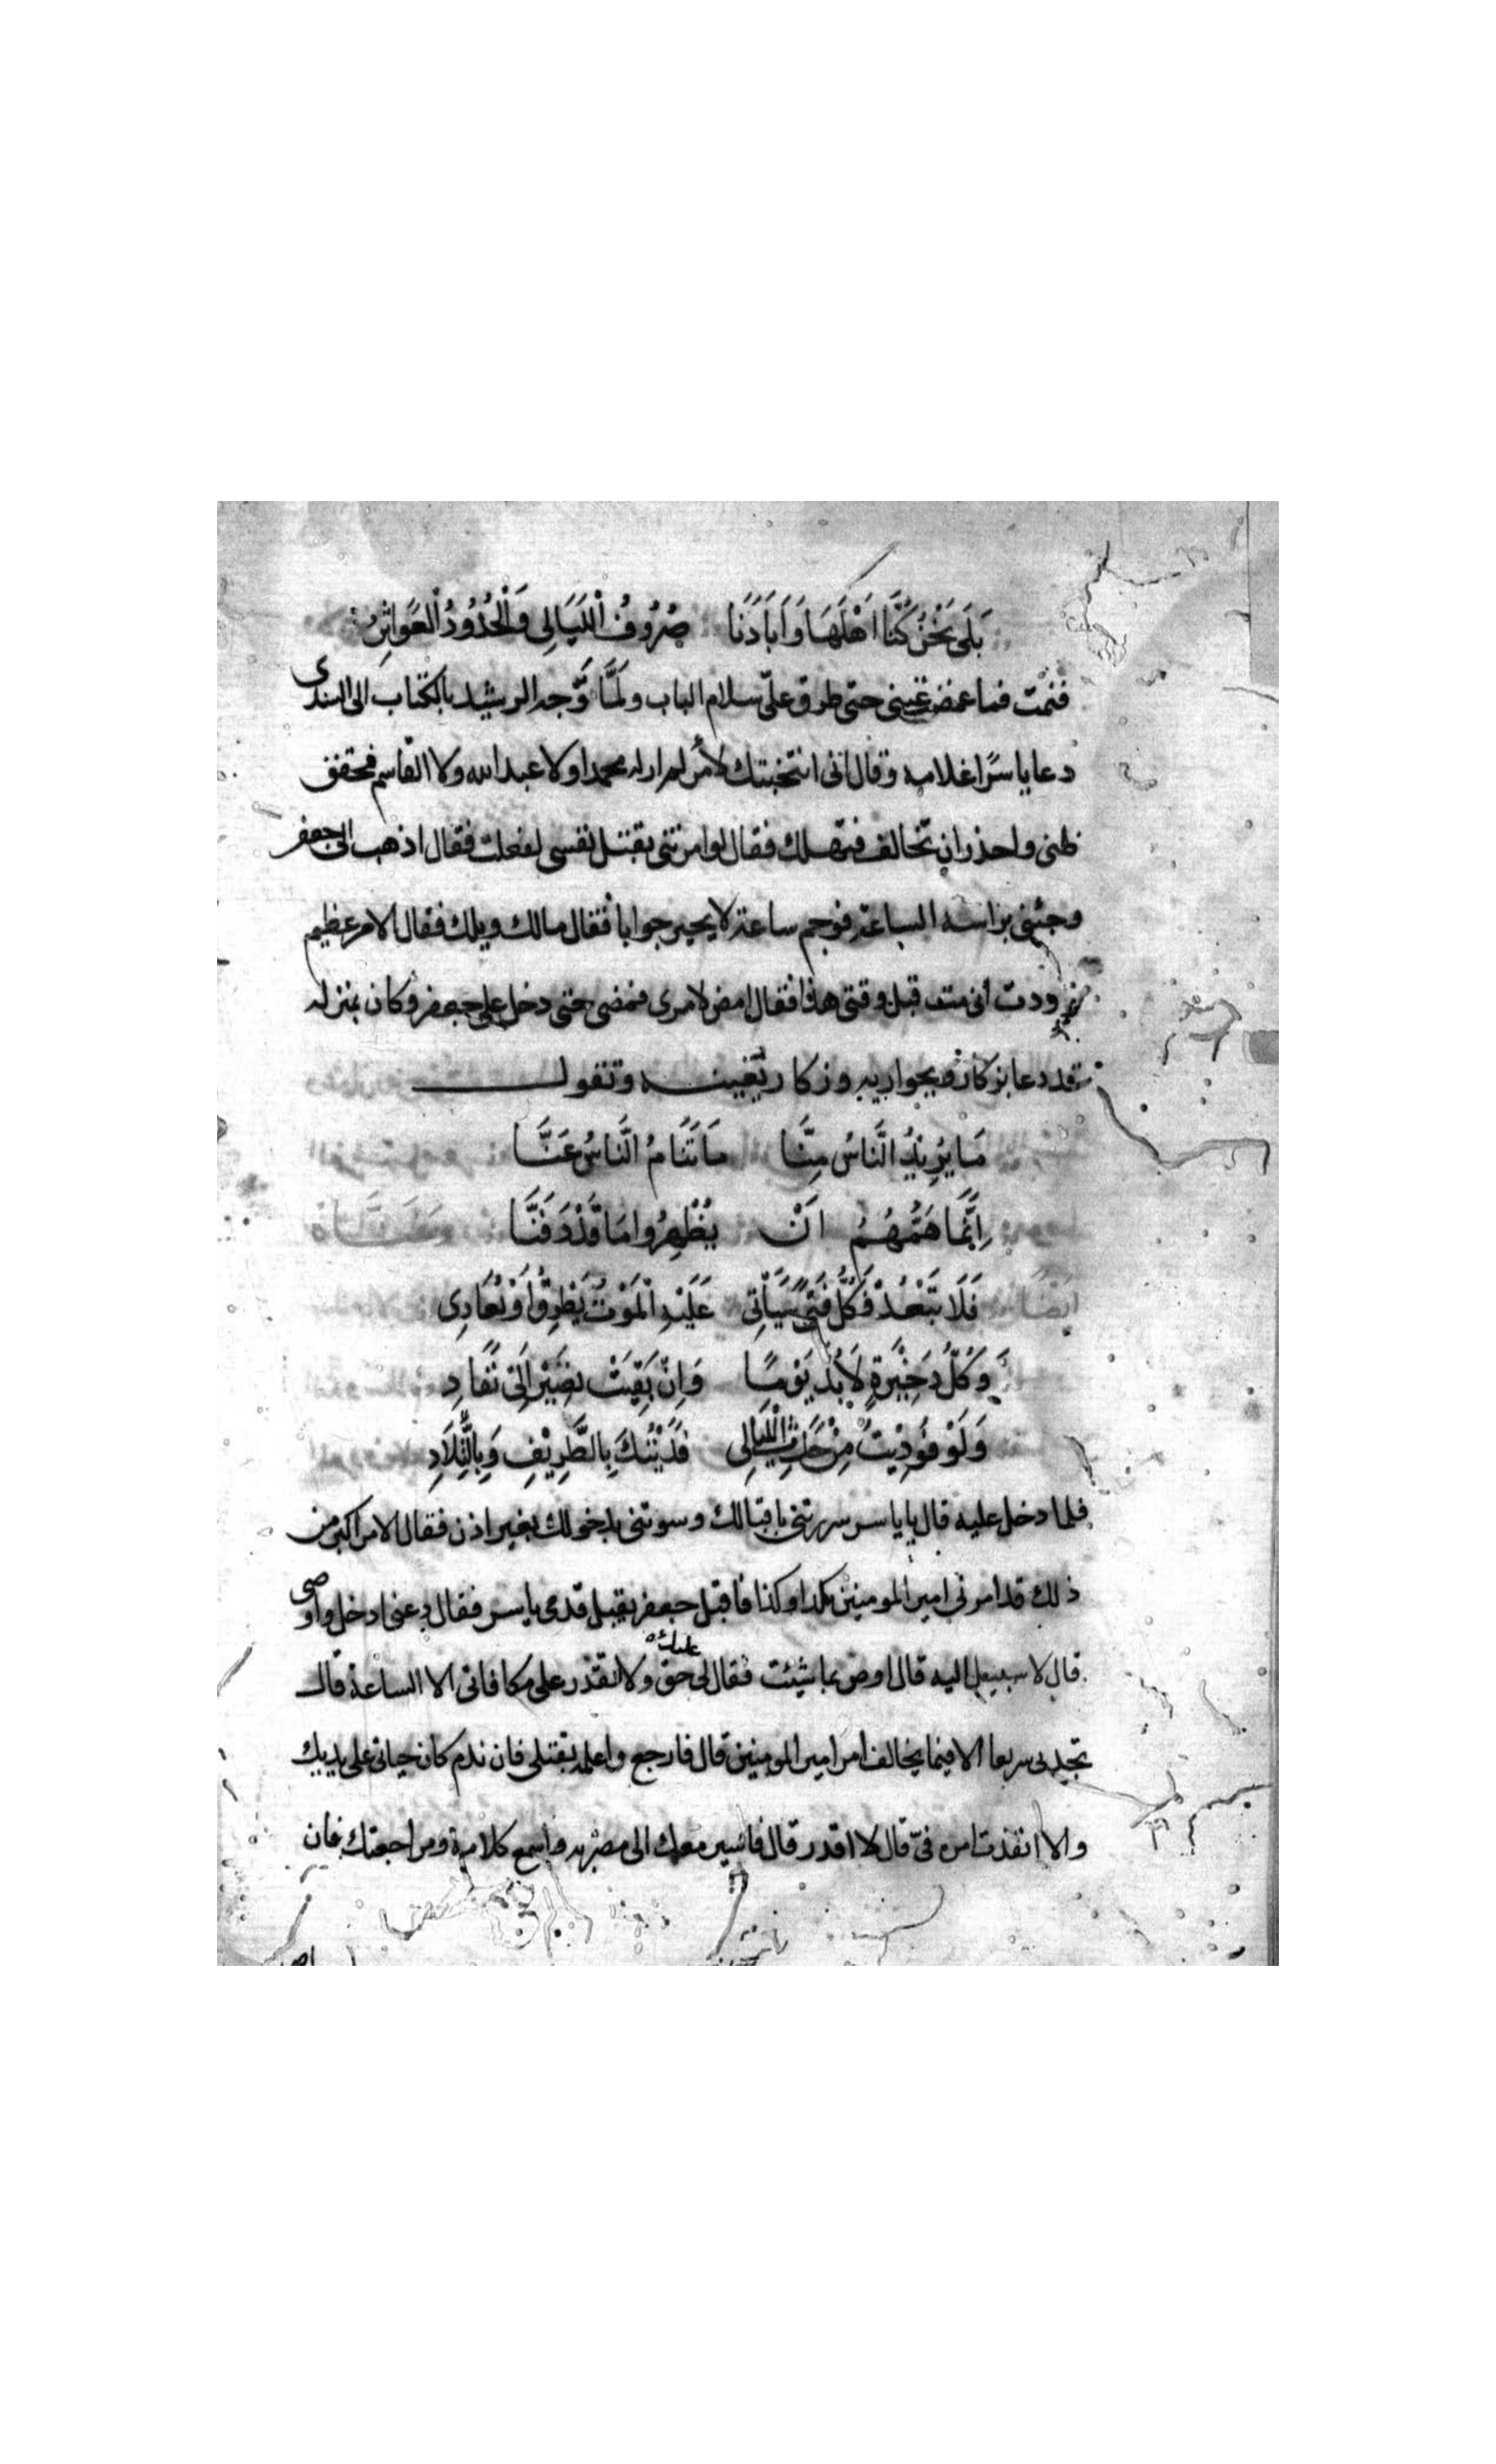 بَلَى نَحْنُ كُنَّا اَهْلَهَا وَاَبَادَنَا صُرُوْفُ الْلَيَالِى وَالْحُدُوْدُ الْعَوَاثِرُ
فنمت فما غمضت عينى حتى طرق علىّ سلام الباب ولمَّا وَّجه الرشيد بالكتاب الى السندى
دعا ياسرًا غلامه وقال انى انتخبتك لأمر لم ار له محمدا ولا عبد الله ولا القاسم فحقق
ظنى واحذر ان تخالف فتهلك فقال لو امرتنى بقتل نفسى لفعلت فقال اذهب الى جعفر
وجئنى براسه الساعة فوجم ساعة لا يحير جوابا فقال مالك ويلك فقال الامر عظيم
وددت انى مت قبل وقتى هذا فقال امض لامرى فمضى حتى دخل على جعفر وكان بمنزله
قد دعا بزكار وبجواريه وزكار يغنيه وتقول
مَا يُرِيْدُ النَّاسُ مِنَّا مَا تَنَامُ النَّاسُ عَنَّا
اِنَّمَا هَمُّهُمُ اَنْ يُظْهِرُوا مَا قَدْ دَفَنَّا
فَلَا تَبْعُدْ فَكُلُّ فَتًى سَيَأْتِى عَلَيْهِ الْمَوْتُ يَطْرِقُ اَوْ يُغَادِى
وَكُلُّ ذَخِيْرَةٍ لَا بُدَّ يَوْمًا وَاِنْ بَقِيَتْ تَصِيْرُ اِلَى نَفَادِ
وَلَوْ فُوْدِيْتُ مِنْ حَدَثِ الْلَيَالِى فَدَيْتُكَ بِالطَّرِيْفِ وَبِالتِّلَادِ
فلما دخل عليه قال يا ياسر سررتنى باقبالك وسوتنى بدخولك بغير اذن فقال الامر اكبر من
ذلك قد امرنى امير المومنين بكذا وكذا فاقبل جعفر يقبل قدمى ياسر فقال دعنى ادخل واوصى
قال لا سبيل اليه قال اوص بما شيئت فقال لى عليك حق ولا تقدر على مكافاتى الا الساعة قال
تجدنى سريعا الا فيما يخالف امر امير المومنين قال فارجع واعلمه بقتلى فان ندم كان حياتى على يديك
والا انفذت امره فىّ قال لا اقدر قال فاسير معك الى مضربه واسمع كلامه ومراجعتك فان